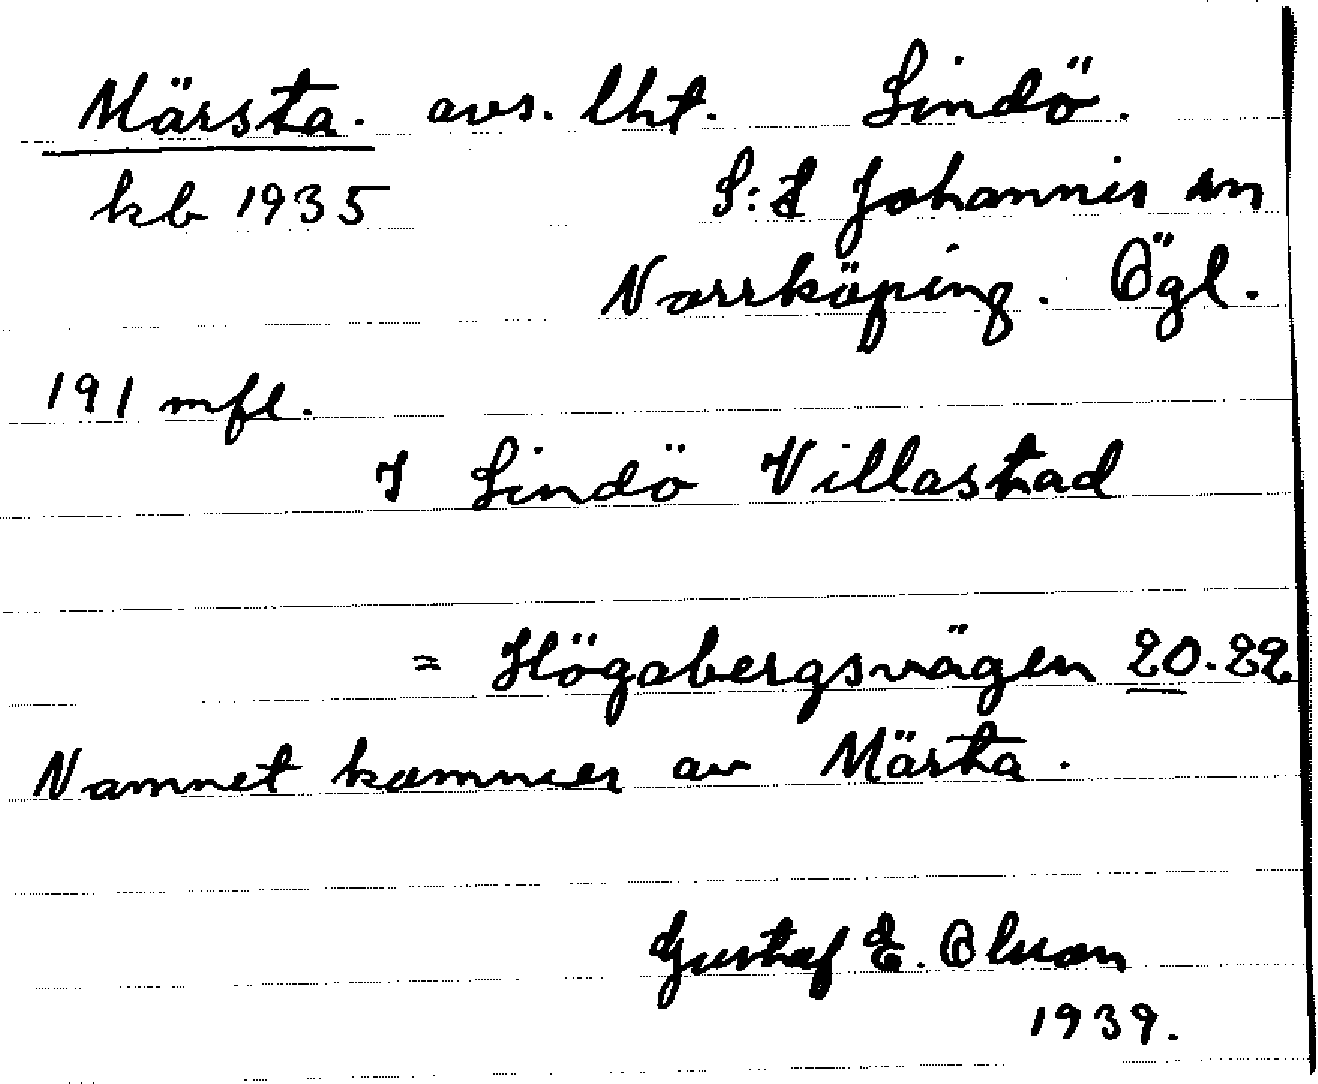 Märsta. avs. lht. Lindö.
kb 1935 S:t Johannis sn
Norrköping. Ögl.
191 mfl.
I Lindö Villastad
= Högabergsvägen 20.22
Namnet kommer av Märta.
Gustaf E. Olson
1939.